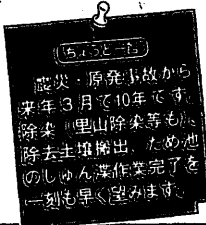 ちょっと一言
震災・原発事故から
来年3月で10年です。
除染、里山除染等も
除去土壌搬出、ため池
のしゅん渫作業完了を
一刻も早く望みます。